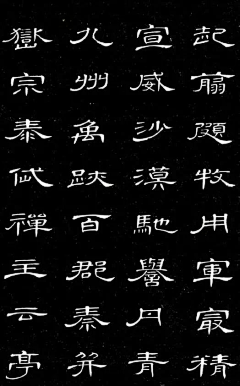 起翦頗牧用軍最精
宣威沙漠馳譽丹青
九州禹跡百郡秦并
嶽宗泰岱禪主云亭